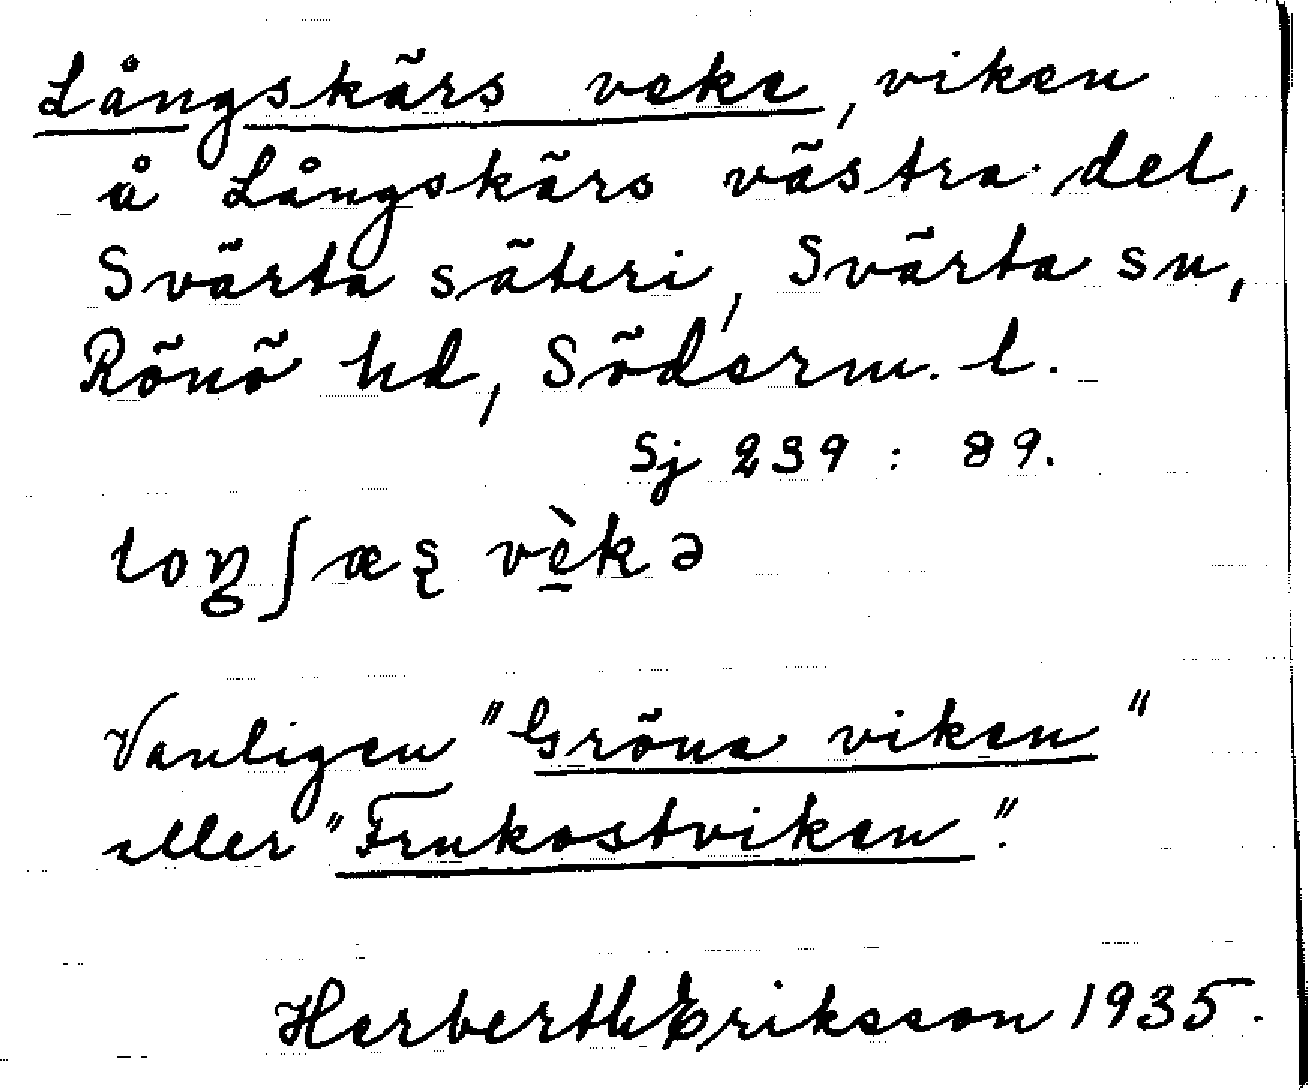 Långskärs veke, viken
å Långskärs västra del,
Svärta säteri, Svärta sn,
Rönö hd, Söderm. l.
Sj 239 : 89.
loŋʃæʂ vèkə
Vanligen "Gröna viken"
eller "Frukostviken".
Herberth Eriksson 1935.